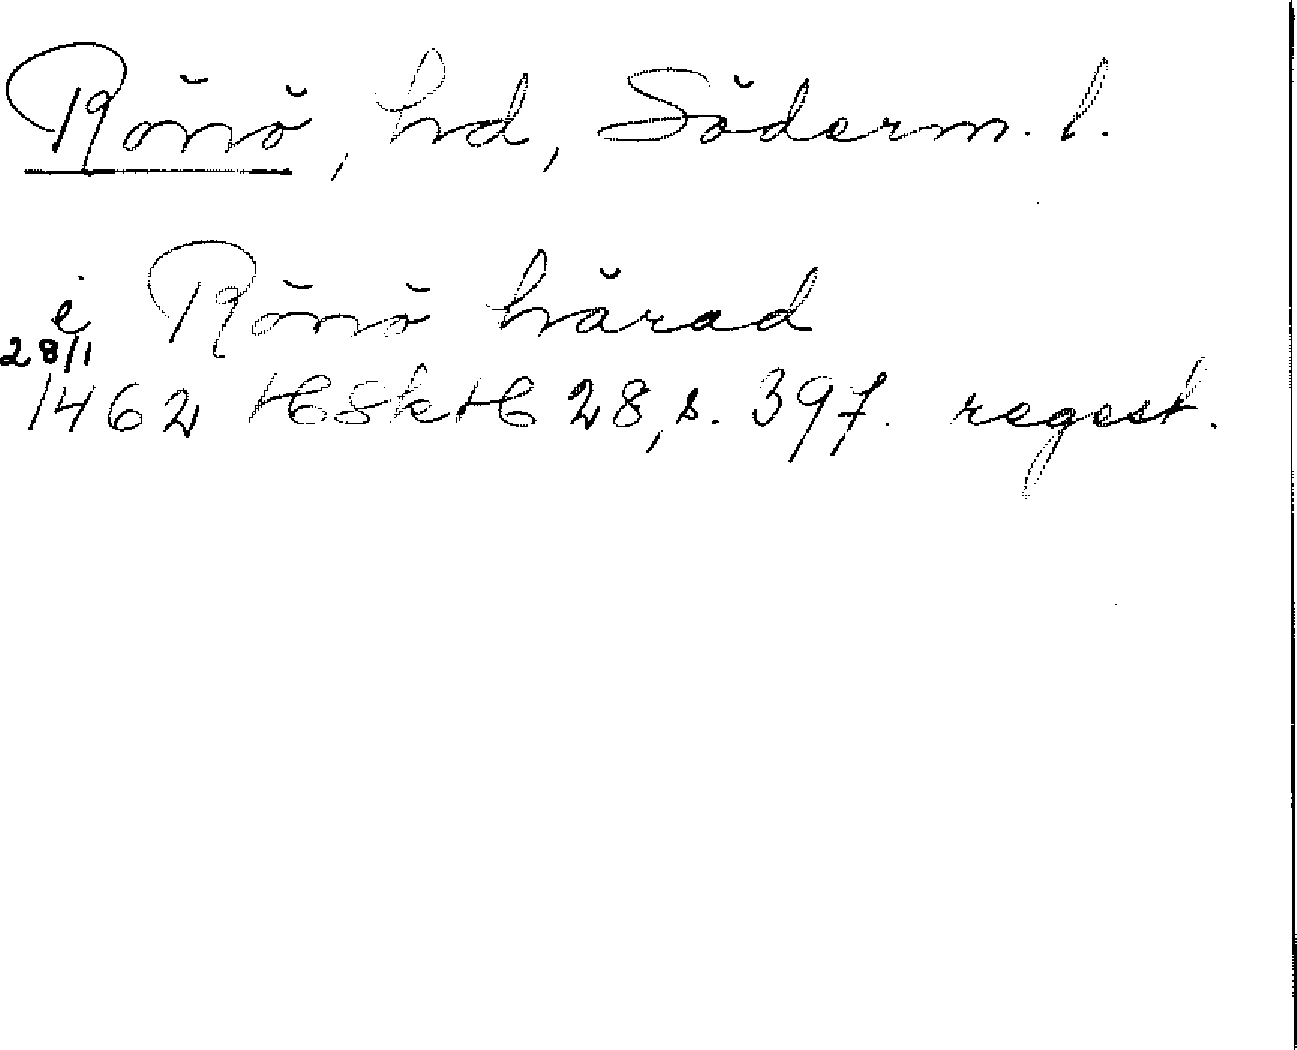 Rönö, hd, Söderm. l.
i Rönö härad
28/1
1462 HSkH 28, s. 397. regest.